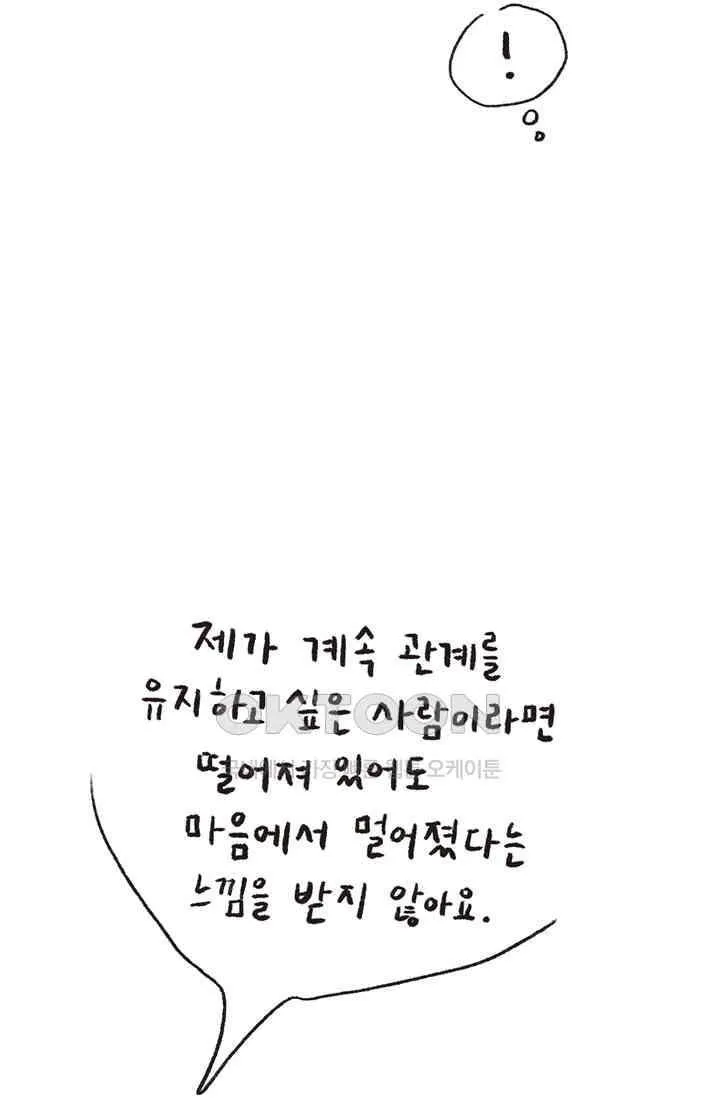 !
제가 계속 관계를
유지하고 싶은 사람이라면
OKTOON
떨어져 있어도
국내에서 가장 빠른 웹툰 오케이툰
마음에서 멀어졌다는
느낌을 받지 않아요.